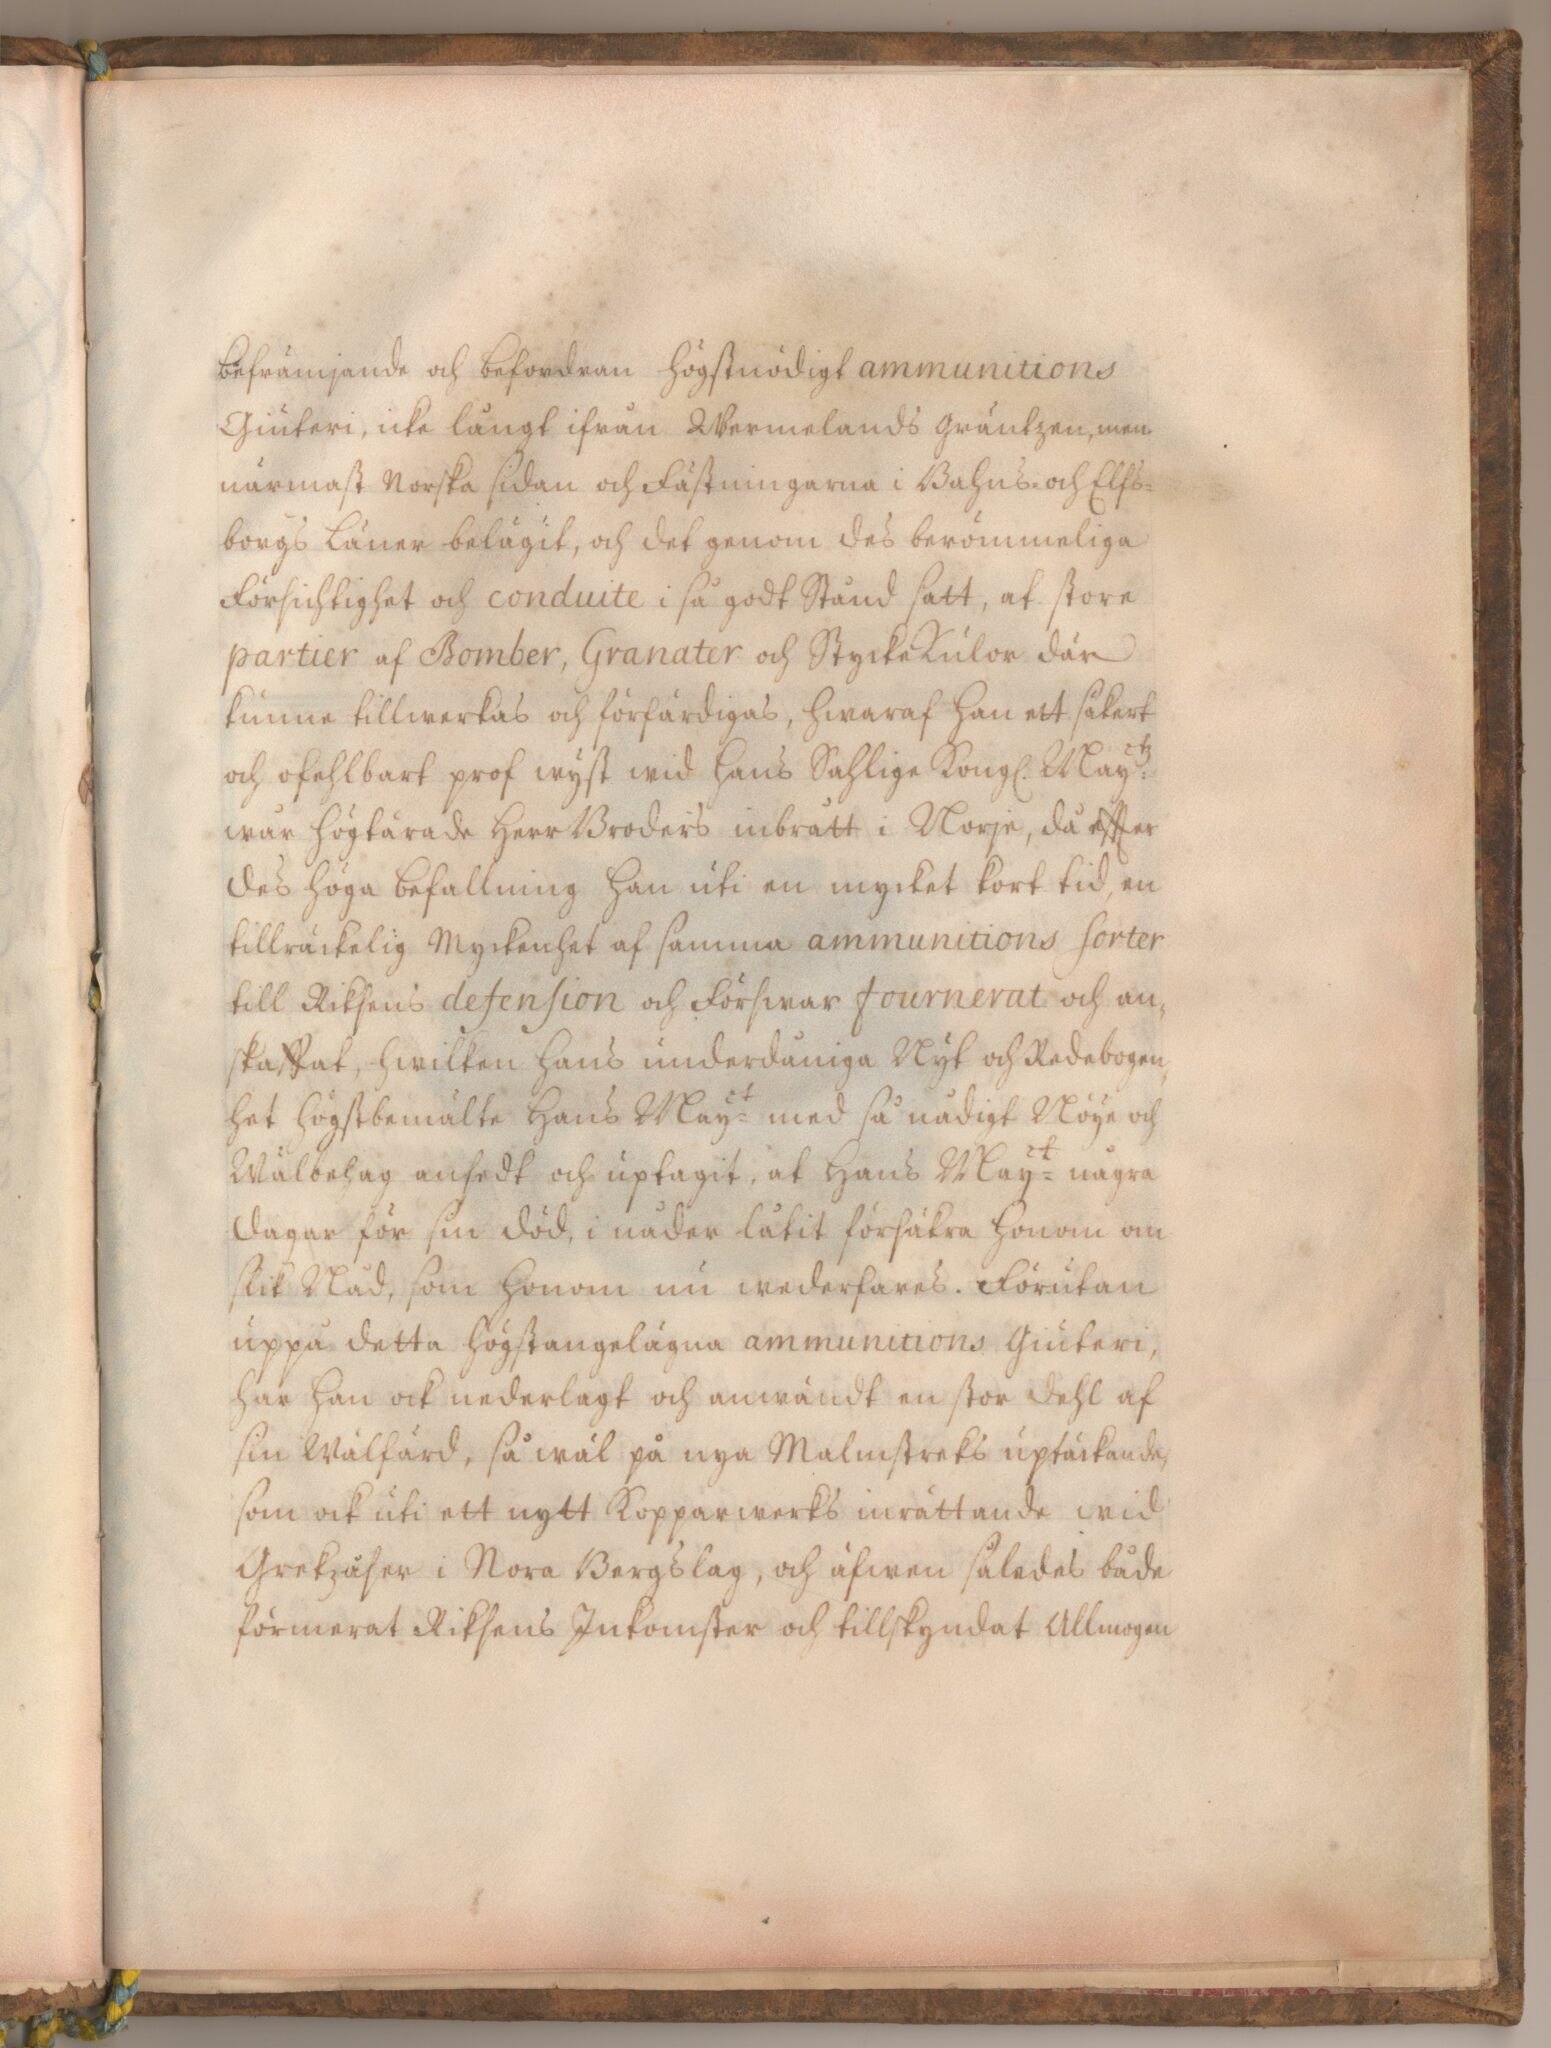 befrämjande och befordran högstnödigt ammunitions
Giuteri, icke långt ifrån Wermelands Gräntzen, men
närmast Norska sidan och Fästningarna i Bahus- och Elfs-
borgs Läner belägit, och det genom des berömmeliga
Försichtighet och conduite i så godt Stånd satt, at store
partier af Bomber, Granater och StyckeKulor där
kunne tillwerkas och förfärdigas, hwaraf han ett säkert
och ofehlbart prof wyst wid Hans Sahlige Kongl. Maÿtz
wår högtärade Herr Broders inbrått i Norje, då effter
des höga befallning han uti en mycket kort tid, en
tillräckelig Myckenhet af samma ammunitions sorter
till Riksens defension och Förswar fournerat och an-
skaffat, hwilken hans underdåniga Nyt och Redebogen-
het högstbemälte Hans Maÿt med så nådigt Nöye och
Wälbehag ansedt och uptagit, at Hans Maÿt några
dagar för sin död, i nåder låtit försäkra honom om
slik Nåd, som honom nu wederfares. Förutan
uppå detta högstangelägna ammunitions Giuteri,
har han ock nederlagt och anwändt en stor dehl af
sin Wälfärd, så wäl på nya Malmstreks uptäckande,
som ock uti ett nytt Kopparwerks inrättande wid
Grekzåser i Nora Bergslag, och äfwen således både
förmerat Riksens Inkomster och tillskyndat Allmogen